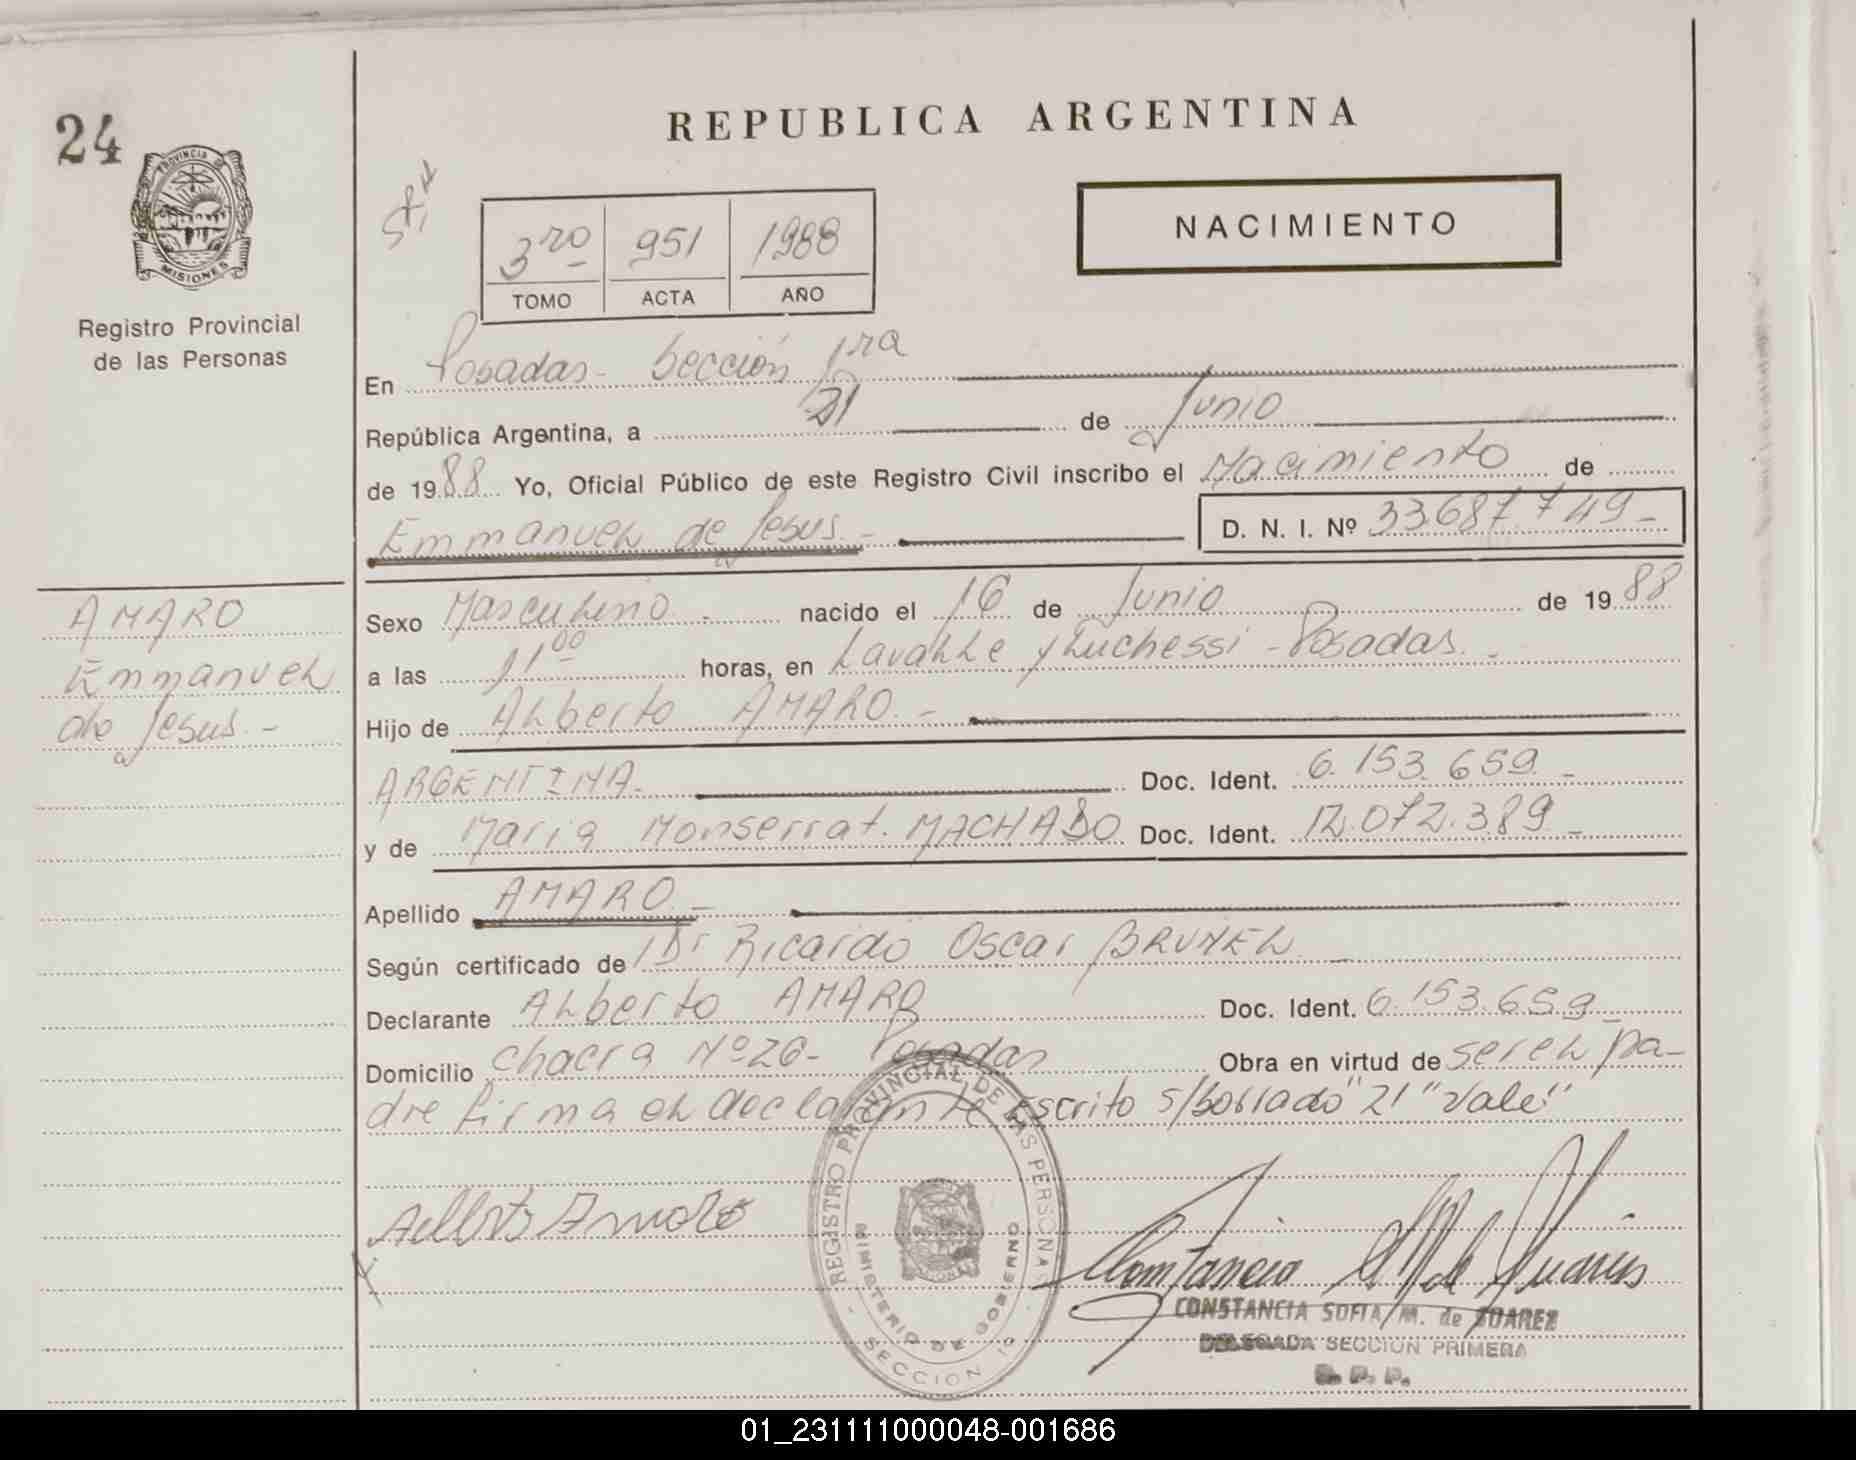 24
PROVINCIA DE
MISIONES
Registro Provincial
de las Personas
AMARO
Emmanuel
de Jesus.-
REPUBLICA ARGENTINA
3ro 951 1988
TOMO ACTA AÑO
NACIMIENTO
En Posadas - Sección 1ra
República Argentina, a 21 de Junio
de 1988 Yo, Oficial Público de este Registro Civil inscribo el Nacimiento de
Emmanuel de Jesus.- D. N. I. Nº 33.687.749-
Sexo Masculino.- nacido el 16 de Junio de 1988
a las 11 00 horas, en Lavalle y Luchessi - Posadas.-
Hijo de Alberto AMARO.-
ARGENTINA.- Doc. Ident. 6.153.659.-
y de Maria Monserrat. MACHADO Doc. Ident. 12.072.389-
Apellido AMARO.-
Según certificado de Dr Ricardo Oscar BRUNEL.-
Declarante Alberto AMARO Doc. Ident. 6.153.659-
Domicilio chacra Nº 26- Posadas Obra en virtud de ser el pa-
dre firma el declarante Escrito s/borrado "21" Vale"
Alberto Amaro
REGISTRO PROVINCIAL DE LAS PERSONAS
MINISTERIO DE GOBIERNO
SECCION 1a
Constancia S M de Suarez
CONSTANCIA SOFIA M. de SUAREZ
DELEGADA SECCION PRIMERA
R. P. P.
01_231111000048-001686